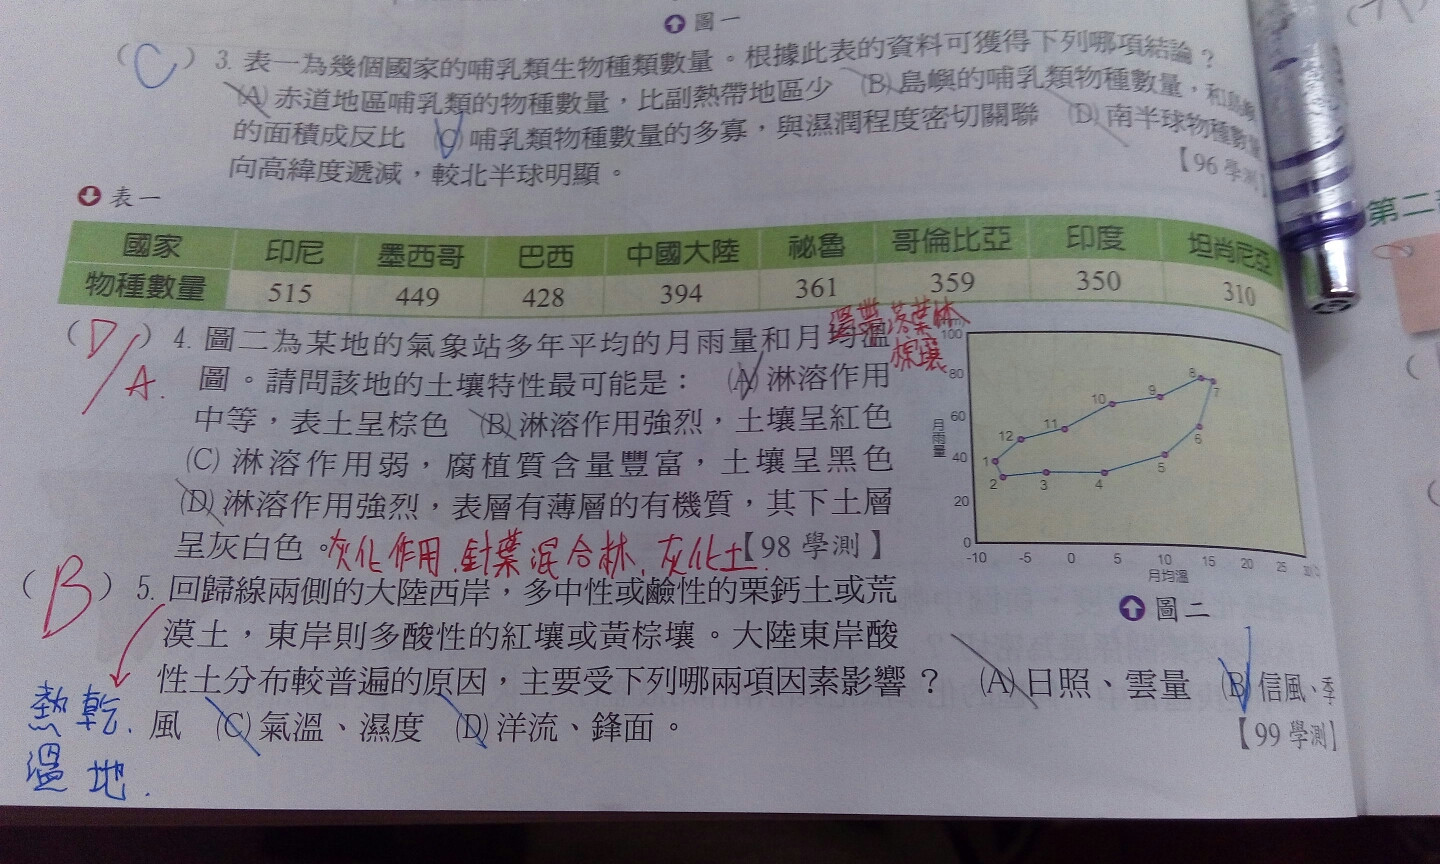 圖一
(C) 3. 表一為幾個國家的哺乳類生物種類數量。根據此表的資料可獲得下列哪項結論?
(A) 赤道地區哺乳類的物種數量,比副熱帶地區少 (B) 島嶼的哺乳類物種數量,和島嶼
的面積成反比 (C) 哺乳類物種數量的多寡,與濕潤程度密切關聯 (D) 南半球物種數量
向高緯度遞減,較北半球明顯。 【96 學測】
表一
國家 印尼 墨西哥 巴西 中國大陸 祕魯 哥倫比亞 印度 坦尚尼亞
物種數量 515 449 428 394 361 359 350 310
(D) 4. 圖二為某地的氣象站多年平均的月雨量和月均溫
A. 圖。請問該地的土壤特性最可能是: (A) 淋溶作用
中等,表土呈棕色 (B) 淋溶作用強烈,土壤呈紅色
(C) 淋溶作用弱,腐植質含量豐富,土壤呈黑色
(D) 淋溶作用強烈,表層有薄層的有機質,其下土層
呈灰白色。 【98 學測】
灰化作用.針葉混合林.灰化土.
落葉林
棕壤
100
80
60
40
20
0
月雨量
1 2 3 4 5 6 7 8 9 10 11 12
-10 -5 0 5 10 15 20 25
月均溫
圖二
(B) 5. 回歸線兩側的大陸西岸,多中性或鹼性的栗鈣土或荒
漠土,東岸則多酸性的紅壤或黃棕壤。大陸東岸酸
性土分布較普遍的原因,主要受下列哪兩項因素影響? (A) 日照、雲量 (B) 信風、季
風 (C) 氣溫、濕度 (D) 洋流、鋒面。 【99 學測】
熱乾.
溫地.
第二